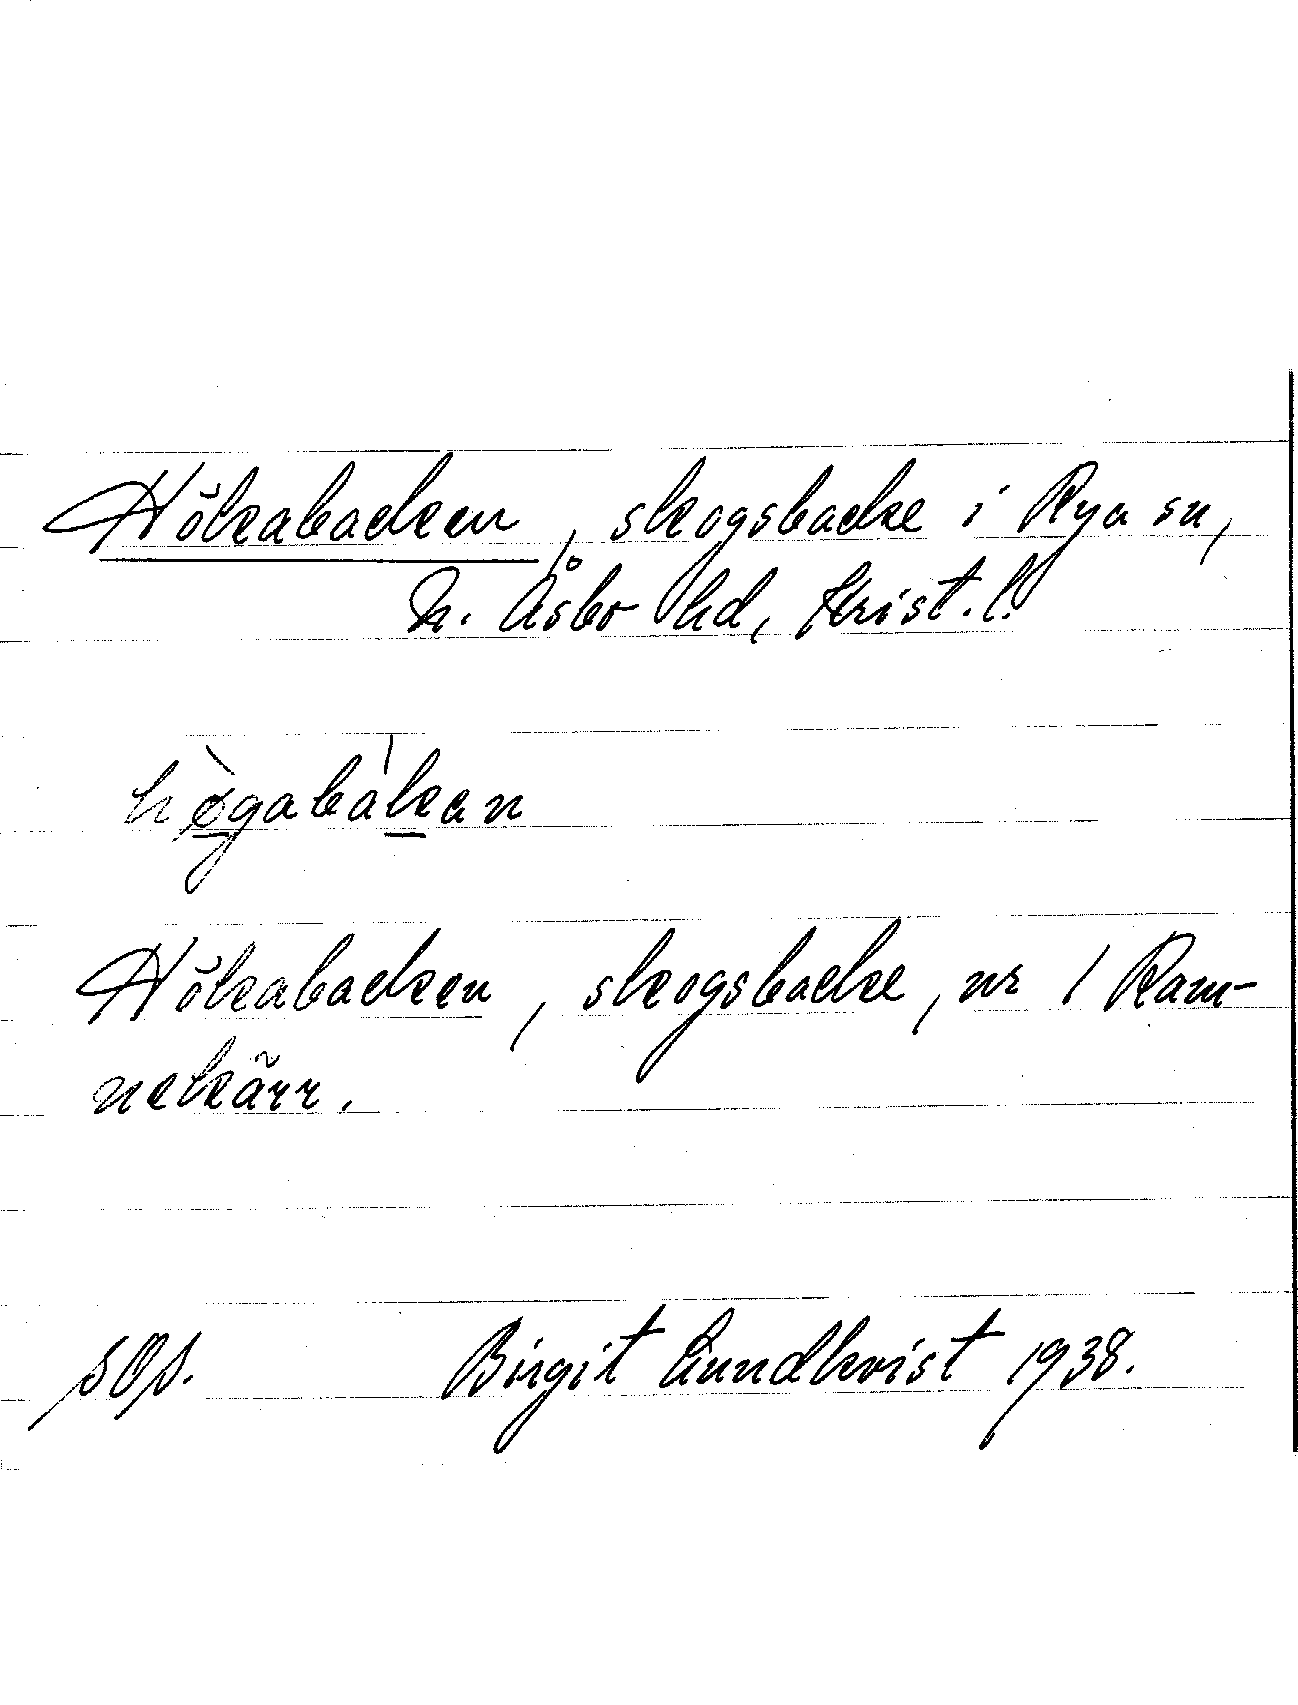 Hökabacken, skogsbacke i Rya sn,
N. Åsbo hd, Krist. l.
hø̀gabàkan
Hökabacken, skogsbacke, nr 1 Ram-
nekärr.
Birgit Lundkvist 1938.